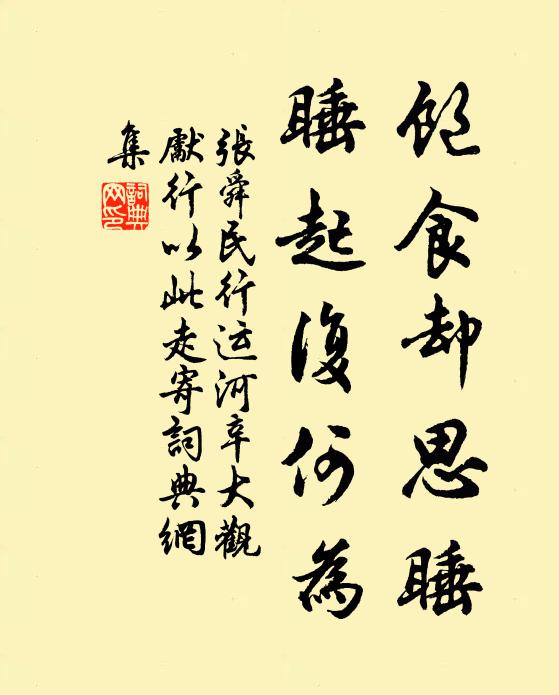 飽食却思睡
睡起復何為
張舜民行运河辛大觀
獻行以此走寄詞典網
集
詞典
网印